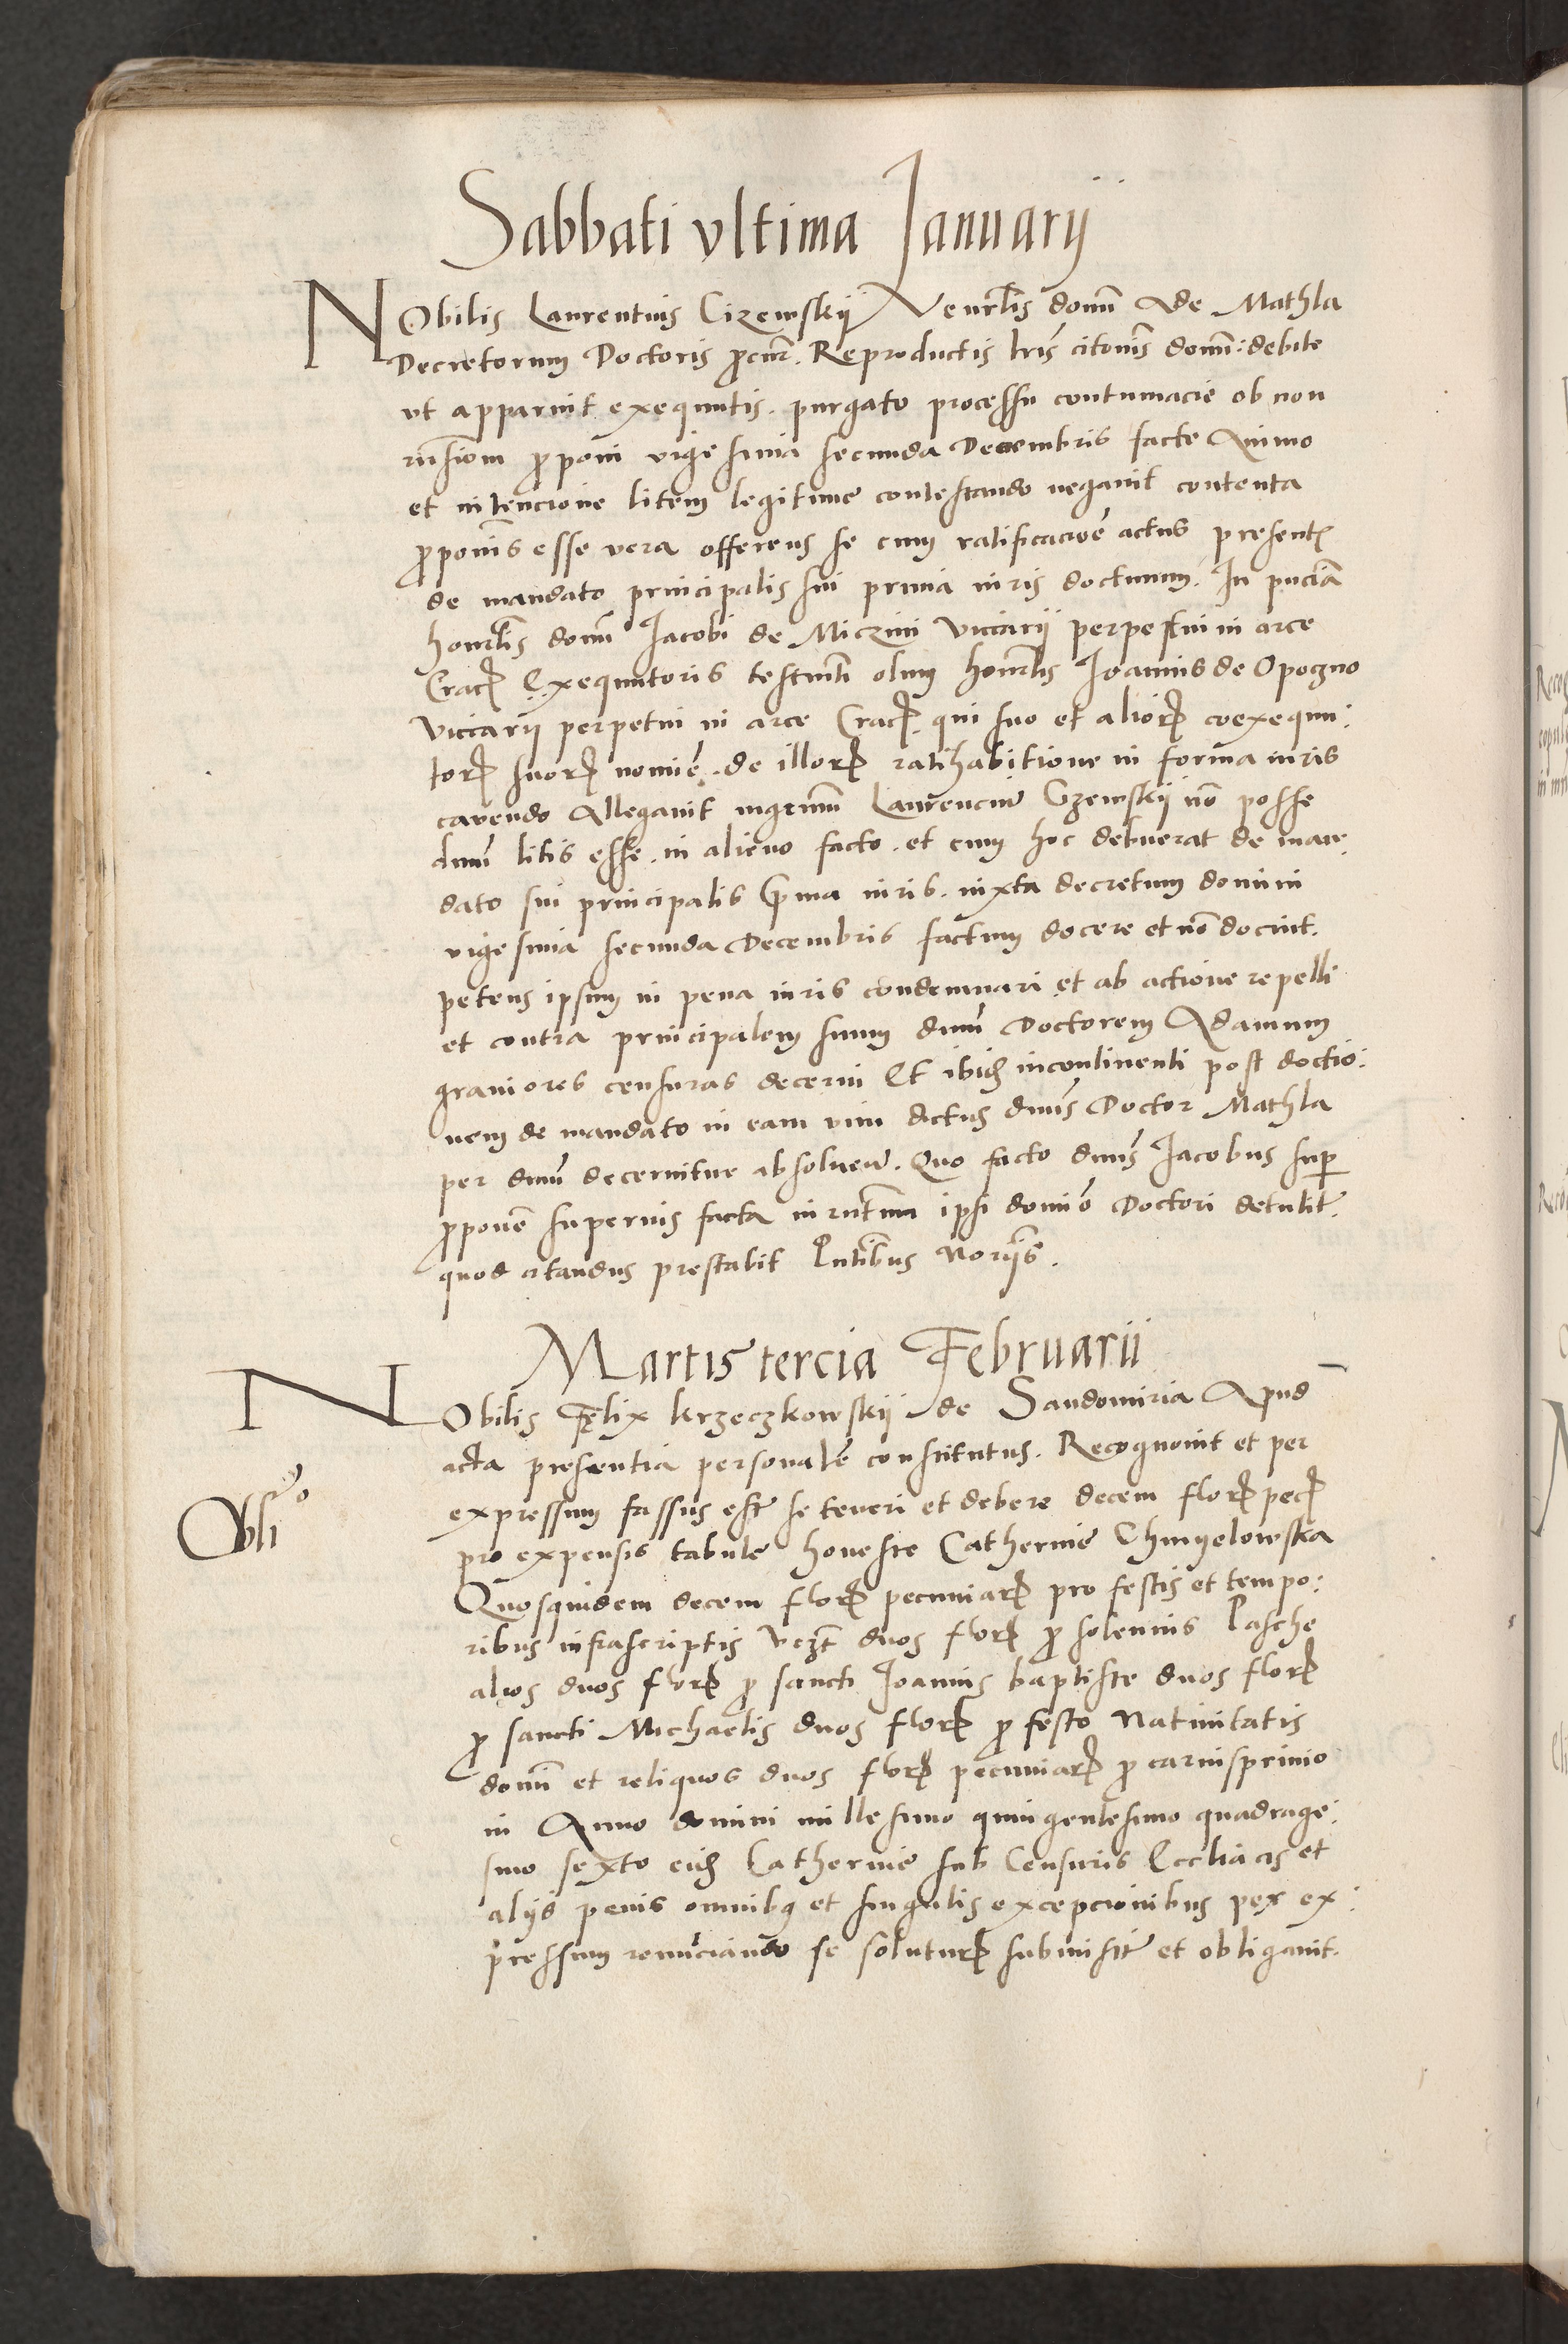 Sabbati vltima Januarij
NObilis Laurentius Cizewskij Venerlis domi Ade Mathla
Decretorum Doctoris procur. Reproductis lris citonis domi: debite
vt apparuit exequutis. purgato processu contumacie ob non
rnsiom proponi vigesima secunda Decembris facte Animo
et intencione litem legitime contestando negauit contenta
proponis esse vera offerens se cum ratificacione actus present
de mandato principalis sui prima iuris docturum. In pnciā
honorlis domi Jacobi de Miczini viccarij perpetui in arce
Crac Exequutoris testmti olim honorlis Joannis de Opogno
viccarij perpetui in arce Crac. qui suo et alior coexequu:
tor suor nomie. de illor ratihabitione in forma iuris
cauendo Allegauit ingenuum Laurencium Czewskij no posse
dnum litis esse. in alieno facto. et cum hoc debuerat de man:
dato sui principalis prima iuris. iuxta decretum domini
vigesima secunda Decembris factum docere et no docuit.
petens ipsum in pena iuris condemnari et ab actione repelli
et contra principalem suum dnum Doctorem Adamum
grauiores censuras decerni Et ibid incontinenti post doctio:
nem de mandato in eam vim dictus dnus Doctor Mathla
per dnum decernitur absoluend. Quo facto dnus Jacobus super
propone superius facta iurtum ipsi domio Doctori detulit.
quod citandus prestabit Pntibus Norijs.
Martis tercia Februarii
NObilis Felix Krzeczkowskij de Sandomiria Apud
acta presentia personale constitutus. Recognouit et per
Oblio
expressum fassus est se teneri et debere decem flor pec
pro expensis tabule honeste Catherine Chmyelowska
Quosquidem decem flor pecuniar pro festis et tempo:
ribus infrascriptis vczt duos flor pro solennis Pasche
alios duos flor pro sancti Joannis baptiste duos flor
pro sancti Michaelis duos flor pro festo Natiuitatis
domi et reliquos duos flor pecuniar pro carnispriuio
in Anno domini millesimo quingentesimo quadrage:
simo sexto eid Catherine sub Censuris Eccliacis et
alijs penis omnibus et singulis excepcionibus per ex:
pressum renunciando se solutur submisit et obligauit.